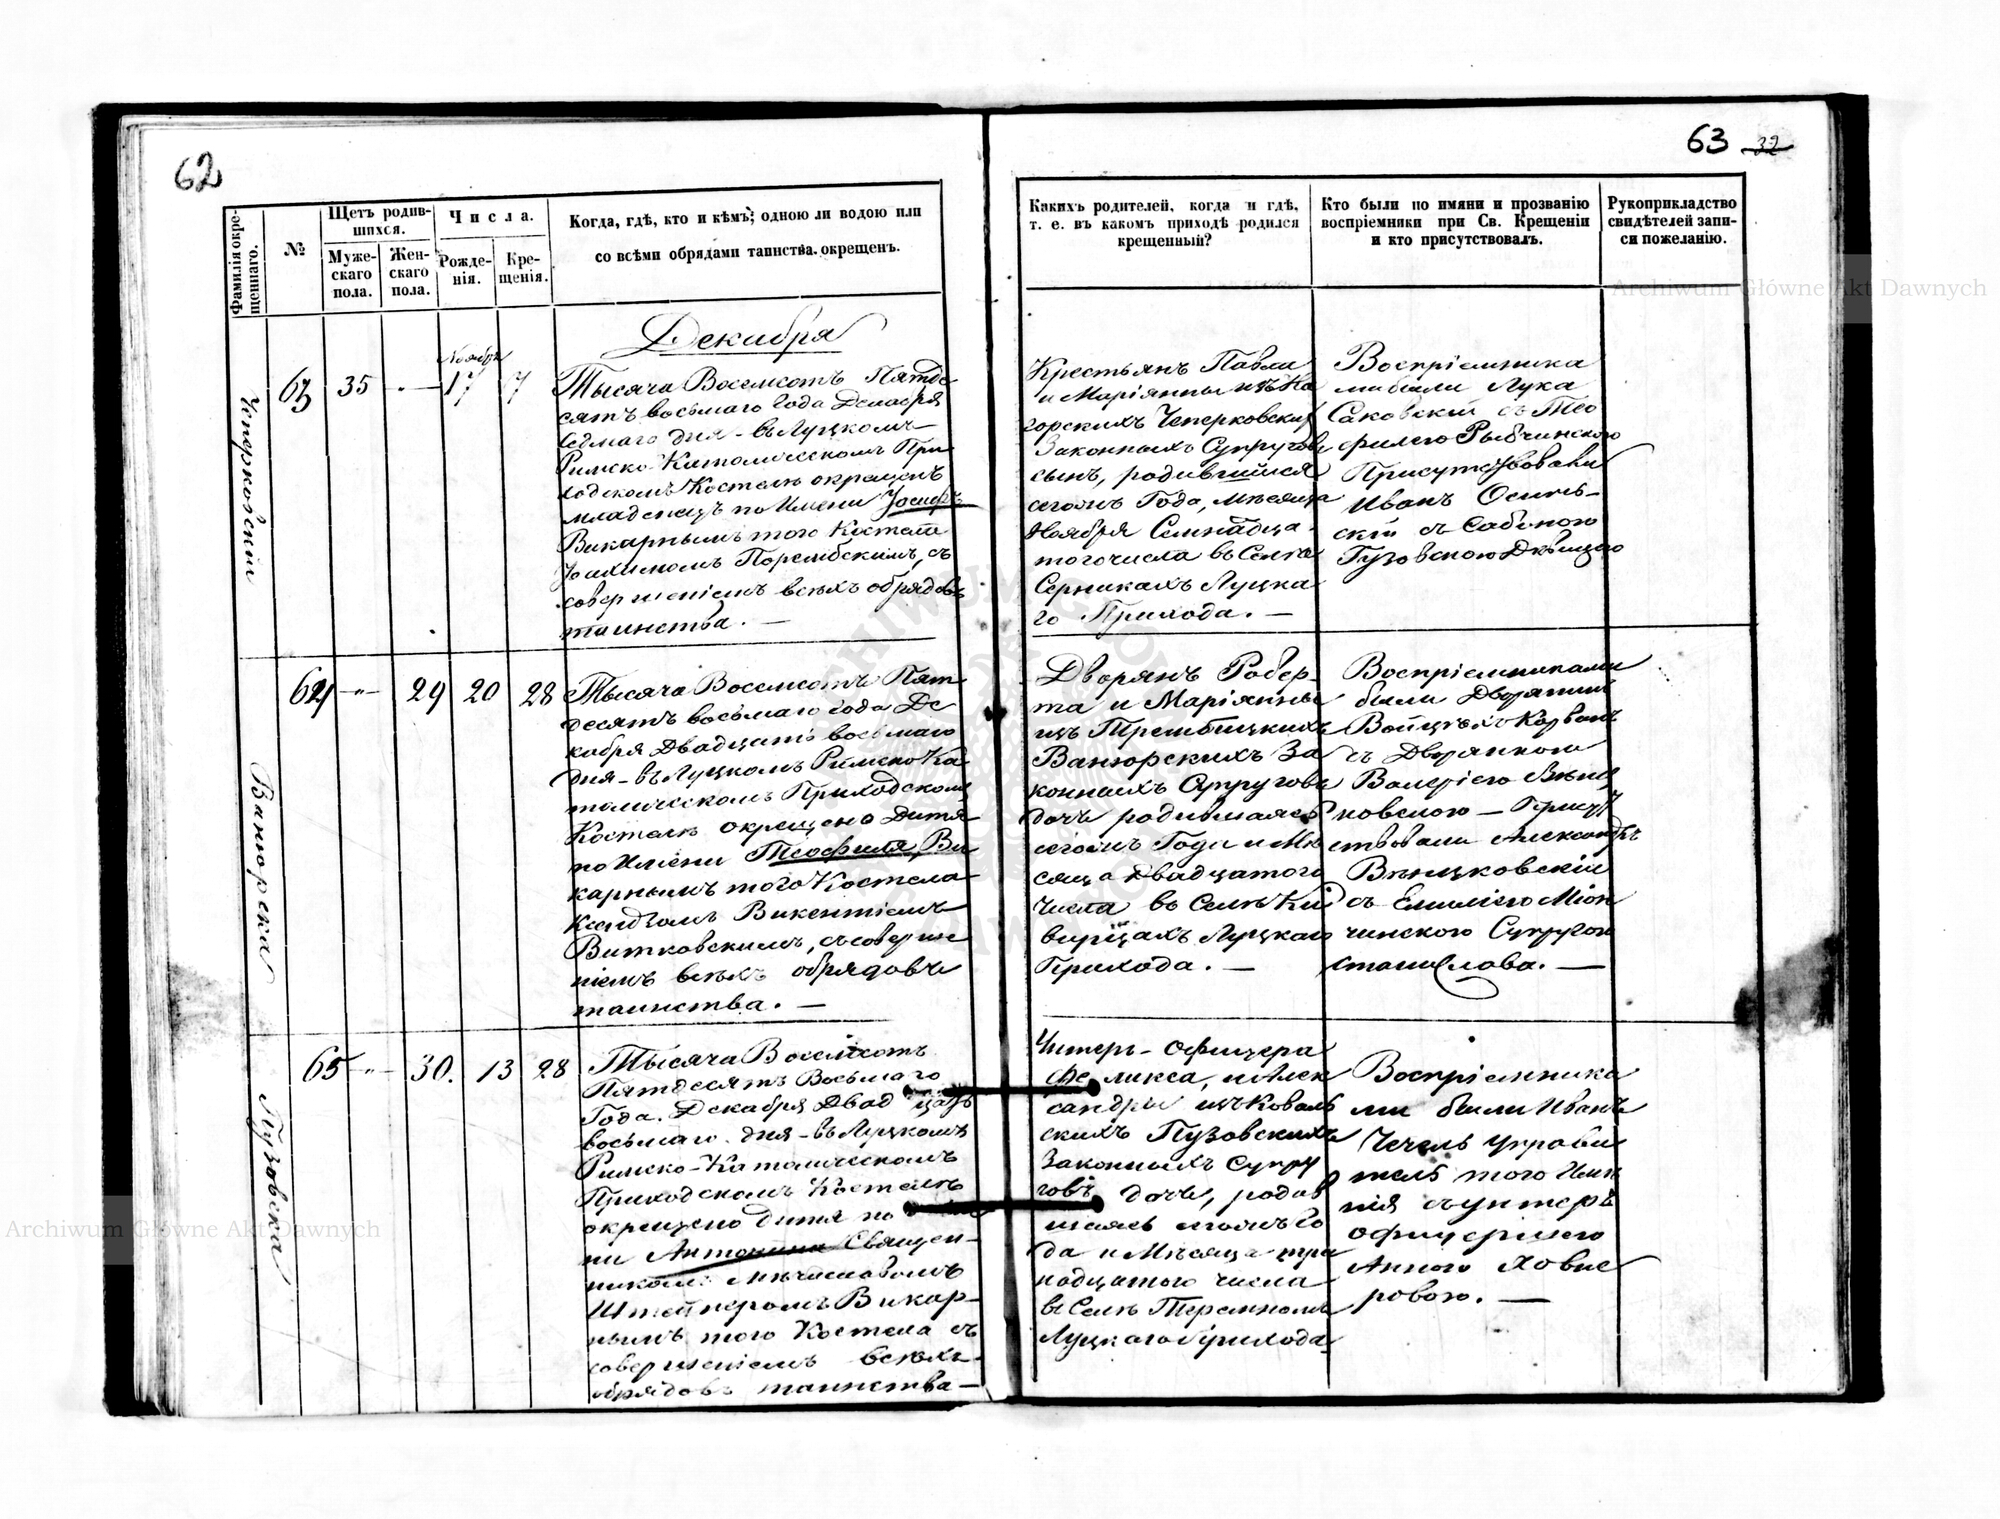 62
Фамилія окре-
щеннаго.
№
Щетъ родив-
шихся.
Муже-
скаго
пола.
Жен-
скаго
пола.
Числа.
Рожде-
нія.
Кре-
щенія.
Когда, гдѣ, кто и кѣмъ; одною ли водою или
со всѣми обрядами таинства окрещенъ.
Декабря
Чеперковскій
63
35
Ноября
17
7
Тысяча Восемсотъ Пятде
сятъ восьмаго Года Декабря
седмаго дня – въ Луцкомъ
Римско-Католическомъ При
ходскомъ Костелѣ окрещенъ
младенецъ по Имени Іосифъ
Викарнымъ того Костела
Іоахимомъ Порембскимъ, съ
совершеніемъ всѣхъ обрядовъ
таинства. –
Ванюрска
64
-"-
29
20
28
Тысяча Восемсотъ Пят
десятъ восьмаго Года Де
кабря Двадцать восьмаго
дня – въ Луцкомъ Римско Ка
толическомъ Приходскомъ
Костелѣ окрещено Дитя
по Имени Теофиля, Ви
карнымъ того Костела
Ксендзомъ Викентіемъ
Витковскимъ, съ соверше
ніемъ всѣхъ обрядовъ
таинства. –
Пузовска
65
-"-
30.
13
28
Тысяча Восемсотъ
Пятдесятъ Восьмаго
Года. Декабря Двадцать
восьмаго дня – въ Луцкомъ
Римско-Католическомъ
Приходскомъ Костелѣ
окрещено дитя по
ни Антонина Священ-
никомъ Мѣчиславомъ
Штейнеромъ Викар-
нымъ того Костела съ
совершеніемъ всѣхъ
обрядовъ таинства –
63 32
Какихъ родителей, когда и гдѣ,
т. е. въ какомъ приходѣ родился
крещенный?
Кто были по имяни и прозванію
воспріемники при Св. Крещеніи
и кто присутствовалъ.
Рукоприкладство
свидѣтелей запи-
си пожеланію.
Крестьянъ Павла
и Маріянны изъ На
горскихъ Чеперковскихъ
Законныхъ Супруговъ
сынъ, родившійся
сегожъ Года, мѣсяца
Ноября Семнадца-
того числа въ Селѣ
Серникахъ Луцка
го Прихода. –
Воспріемника
ми были Лука
Саковскій съ Тео
филею Рыбчинскою
Присутствовали
Иванъ Осинь-
скій съ Сабиною
Гузовскою Дѣвицею
Дворянъ Робер-
та и Маріянны
изъ Трембицкихъ
Ванюрскихъ За
конныхъ Супруговъ
дочь родившаяся
сегожъ Года и Мѣ
сяца Двадцатого
числа въ Селѣ Ки
верцахъ Луцкаго
Прихода. –
Воспріемниками
были Дворянинъ
Войцѣхъ Корвинъ
съ Дворянкою
Валеріею Вѣнц
ковскою – Присут
ствовали Александръ
Вѣнцковскій
съ Емиліею Міон
чинскою Супругой
Станислава. –
Унтеръ-Офицера
Феликса, и Алек
сандры изъ Коваль
скихъ Пузовскихъ
Законныхъ Супру
говъ дочь, родив
шаяся сегожъ Го
да и Мѣсяца три
надцатого числа
въ Селѣ Теремномъ
Луцкаго Прихода
Воспріемника
ми были Иванъ
Чечель управи
тель того Имѣ
нія съ унтеръ
офицершею
Анною Ховне
ровою. –
Archiwum Główne Akt Dawnych
Archiwum Główne Akt Dawnych